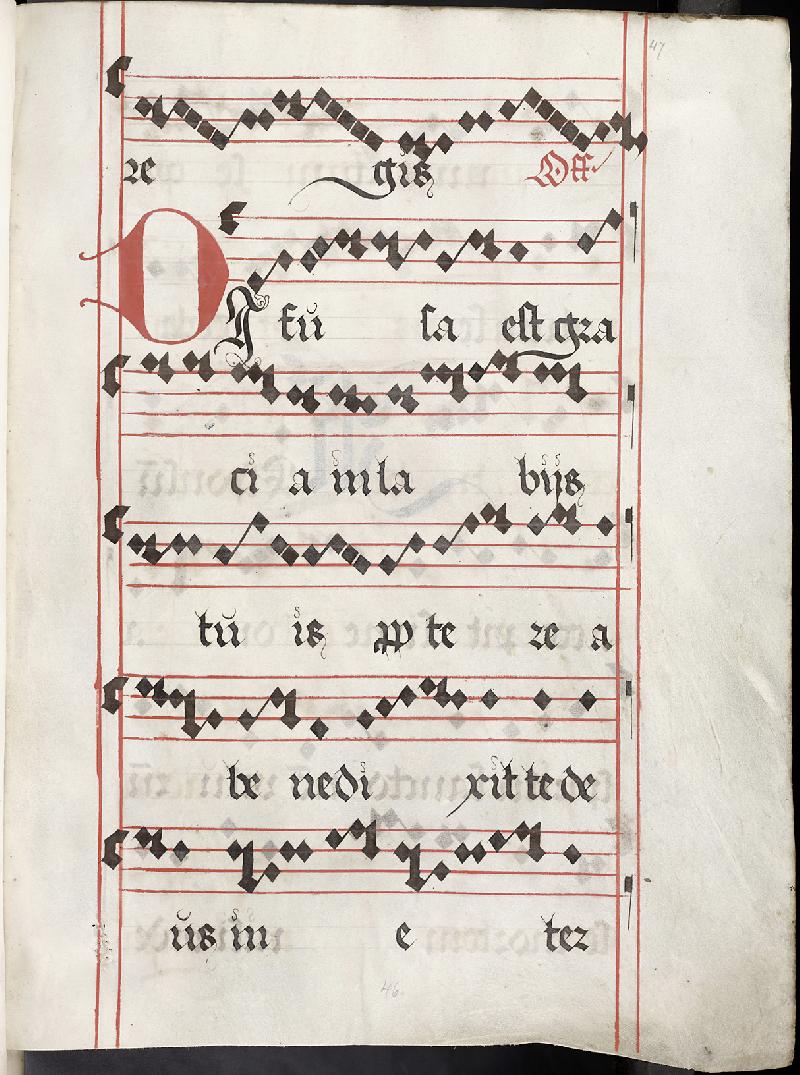 47
re gis Off
DI fu sa est gra
ci a in la bijs
tu is ꝓp te re a
be nedi xit te de
us in e ter
46.